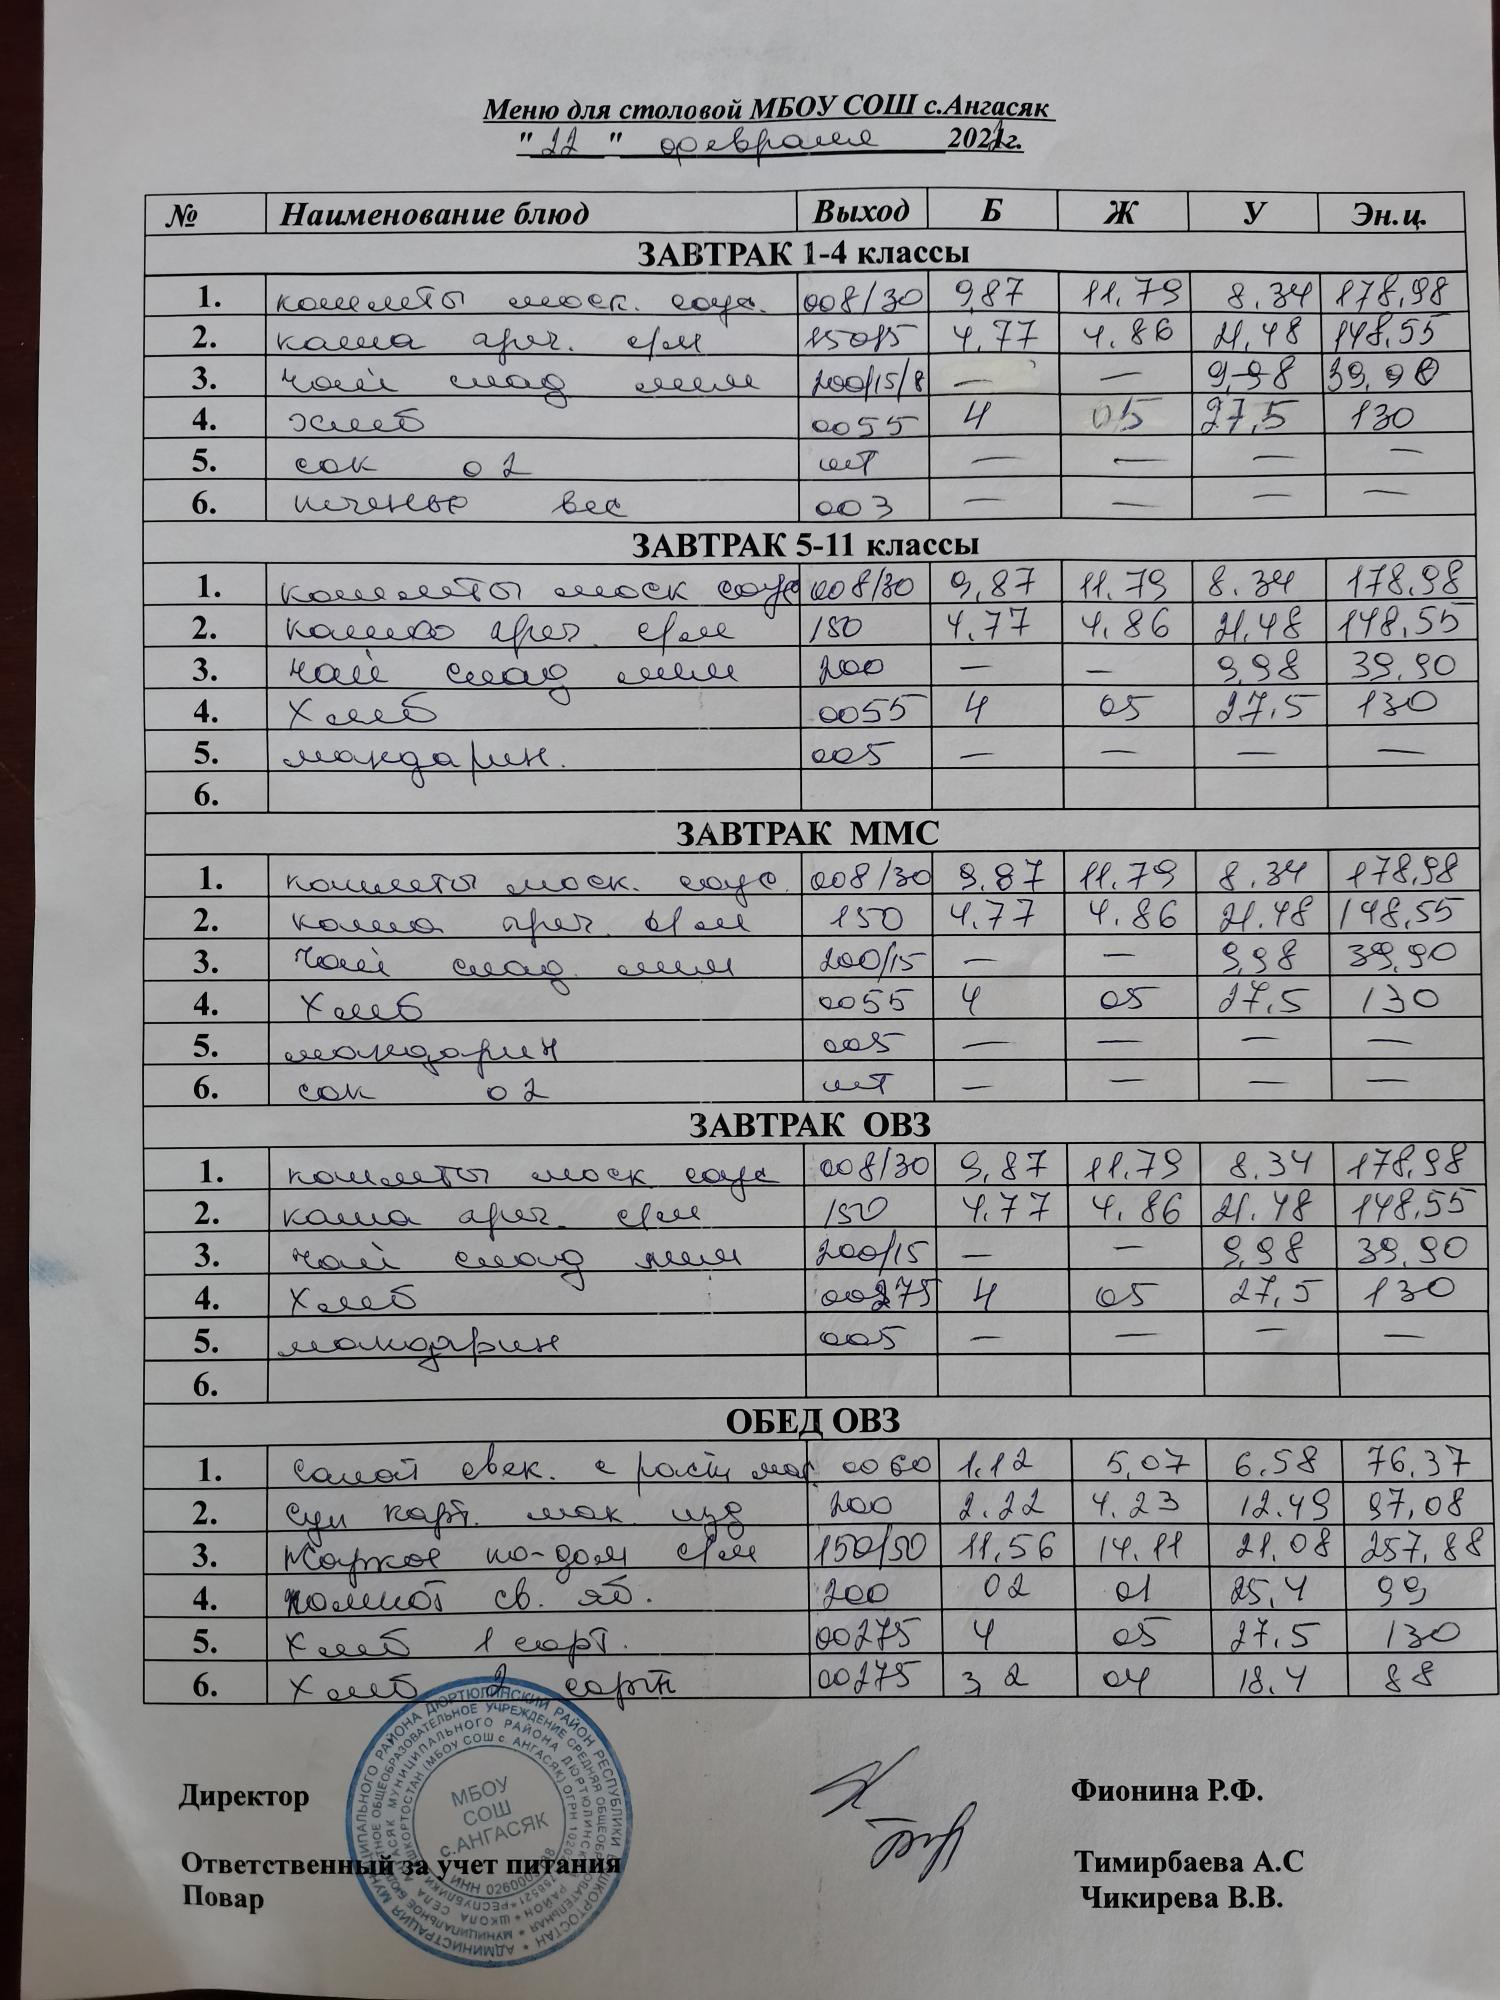 Меню для столовой МБОУ СОШ с.Ангасяк
"22" февраля 2022г.
№ Наименование блюд Выход Б Ж У Эн.ц.
ЗАВТРАК 1-4 классы
1. котлеты моск. соус. 008/30 9,87 11.79 8.34 178,98
2. каша греч. с/м 150/5 4,77 4.86 21,48 148,55
3. чай слад лим 200/15/8 — — 9,98 39,90
4. Хлеб 0055 4 05 27,5 130
5. сок 02 шт — — — —
6. печенье вес 003 — — — —
ЗАВТРАК 5-11 классы
1. котлеты моск соус 008/30 9,87 11.79 8.34 178,98
2. каша греч. с/м 150 4.77 4.86 21.48 148,55
3. чай слад лим 200 — — 9,98 39,90
4. Хлеб 0055 4 05 27,5 130
5. мандарин. 005 — — — —
6.
ЗАВТРАК ММС
1. котлеты моск. соус. 008/30 9,87 11.79 8.34 178,98
2. каша греч. с/м 150 4.77 4.86 21.48 148,55
3. чай слад. лим 200/15 — — 9,98 39,90
4. Хлеб 0055 4 05 27,5 130
5. мандарин 005 — — — —
6. сок 02 шт — — — —
ЗАВТРАК ОВЗ
1. котлеты моск соус 008/30 9,87 11.79 8.34 178,98
2. каша греч. с/м 150 4.77 4.86 21.48 148,55
3. чай слад лим 200/15 — — 9,98 39,90
4. Хлеб 00275 4 05 27,5 130
5. мандарин 005 — — — —
6.
ОБЕД ОВЗ
1. салат свек. с раст мас 0060 1.12 5,07 6.58 76,37
2. суп карт. мак. изд 200 2.22 4.23 12.49 97,08
3. Жаркое по-дом с/м 150/50 11,56 14.11 21,08 257,88
4. компот св. яб. 200 02 01 25,4 99
5. Хлеб 1 сорт. 00275 4 05 27.5 130
6. Хлеб 2 сорт 00275 3,2 04 18.4 88
МБОУ
СОШ
с.АНГАСЯК
Директор Фионина Р.Ф.
Ответственный за учет питания Тимирбаева А.С
Повар Чикирева В.В.